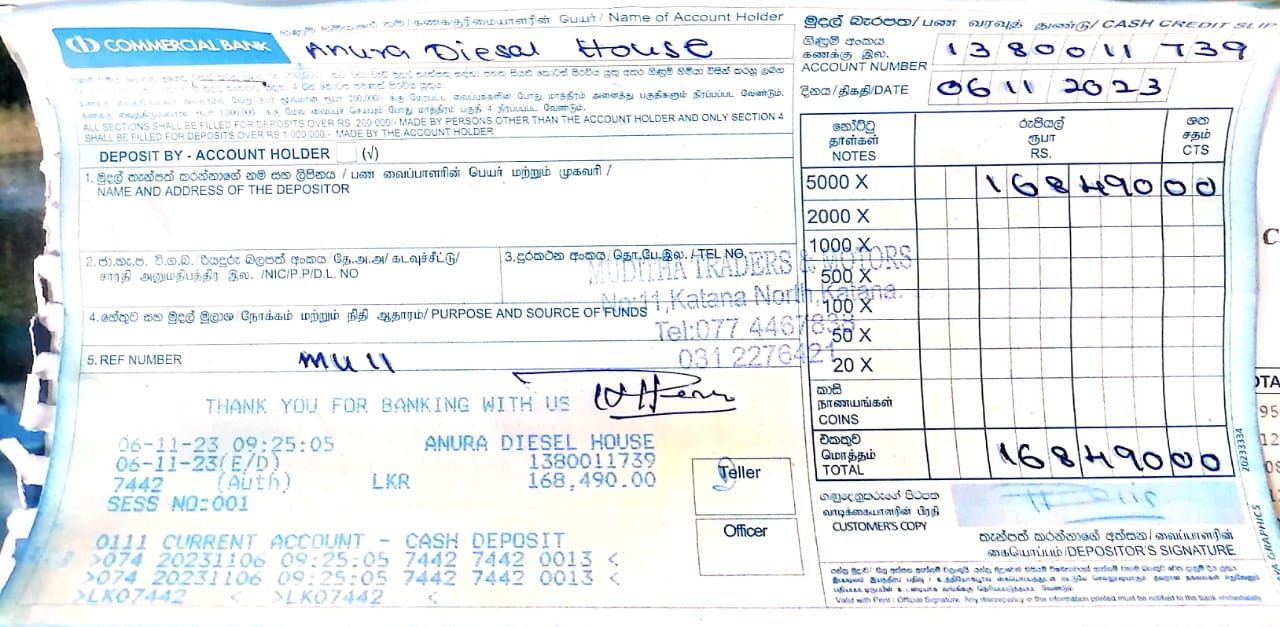 කணக்குரிமையாளரின் பெயர் / Name of Account Holder
COMMERCIAL BANK
Anura Diesal House
මුදල් බැරපත / பண வரவுத் துண்டு / CASH CREDIT SLIP
ගිණුම් අංකය
கணக்கு இல.
ACCOUNT NUMBER
1380011739
දිනය / திகதி / DATE
06 11 2023
ALL SECTIONS SHALL BE FILLED FOR DEPOSITS OVER RS. 200,000/- MADE BY PERSONS OTHER THAN THE ACCOUNT HOLDER AND ONLY SECTION 4
SHALL BE FILLED FOR DEPOSITS OVER RS 1,000,000/- MADE BY THE ACCOUNT HOLDER
DEPOSIT BY - ACCOUNT HOLDER (√)
1. මුදල් තැන්පත් කරන්නාගේ නම සහ ලිපිනය / பண வைப்பாளரின் பெயர் மற்றும் முகவரி /
NAME AND ADDRESS OF THE DEPOSITOR
2. ජා.හැ.ප. වි.ග.බ. / රියදුරු බලපත් අංකය / தே.அ.அ / கடவுச்சீட்டு /
சாரதி அனுமதிபத்திர இல. / NIC/P.P/D.L. NO
3. දුරකථන අංකය / தொ.பே.இல. / TEL NO.
4. හේතුව සහ මුදල් මූලාශ්‍ර / நோக்கம் மற்றும் நிதி ஆதாரம் / PURPOSE AND SOURCE OF FUNDS
5. REF NUMBER
MU 11
MUDITHA TRADERS & MOTORS
No:11, Katana North, Katana.
Tel:077 4467838
031 2276421
නෝට්ටු
தாள்கள்
NOTES
රුපියල්
ரூபா
RS.
ශත
சதம்
CTS
5000 X 168490 00
2000 X
1000 X
500 X
100 X
50 X
20 X
කාසි
நாணயங்கள்
COINS
එකතුව
மொத்தம்
TOTAL
168490 00
THANK YOU FOR BANKING WITH US
06-11-23 09:25:05 ANURA DIESEL HOUSE
06-11-23(E/D) 1380011739
7442 (Auth) LKR 168,490.00
SESS NO:001
0111 CURRENT ACCOUNT - CASH DEPOSIT
>074 20231106 09:25:05 7442 7442 0013 <
>074 20231106 09:25:05 7442 7442 0013 <
>LK07442 < >LK07442 <
Teller
Officer
ගනුදෙනුකරුගේ පිටපත
வாடிக்கையாளரின் பிரதி
CUSTOMER'S COPY
තැන්පත් කරන්නාගේ අත්සන / வைப்பாளரின்
கையொப்பம் / DEPOSITOR'S SIGNATURE
Valid with Print / Official Signature. Any discrepancy in the information printed must be notified to the bank immediately
20233334
GRAPHICS